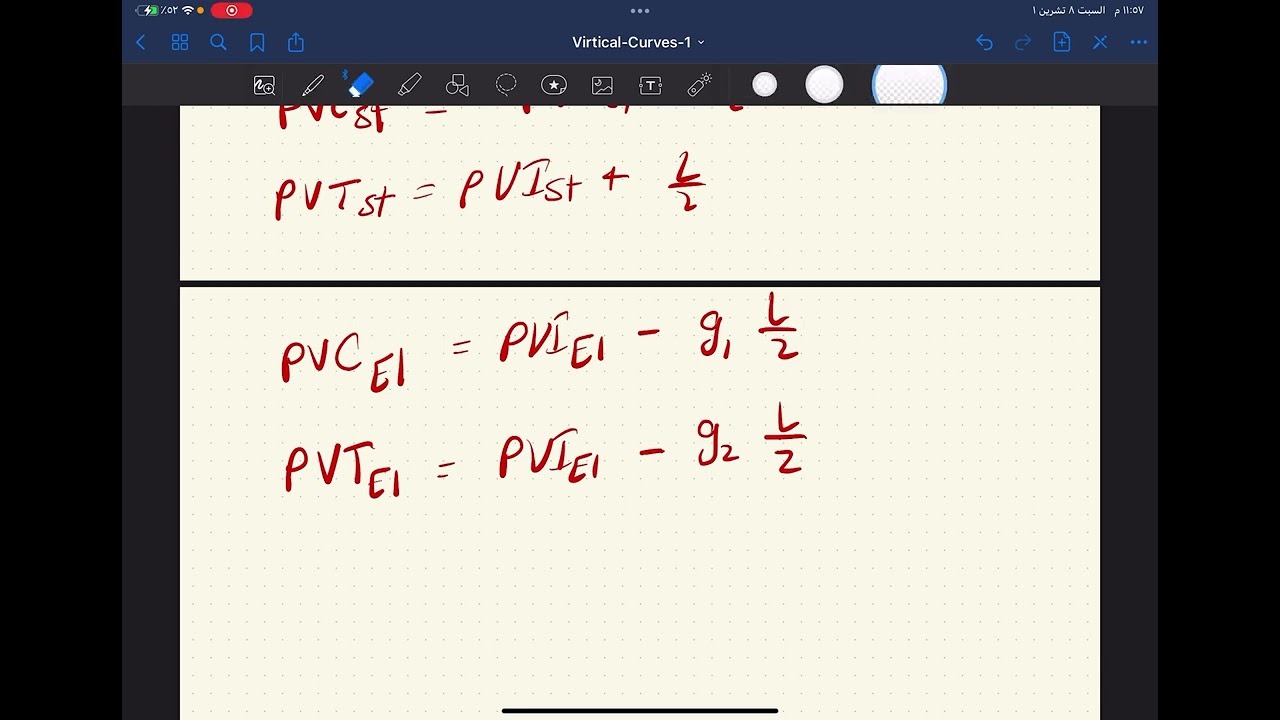 ٪٥٢
١١:٥٧ م السبت ٨ تشرين ١
Virtical-Curves-1
T
PVC st =
PVT st = PVI st + L/2
PVC El = PVI El - g1 L/2
PVT El = PVI El - g2 L/2